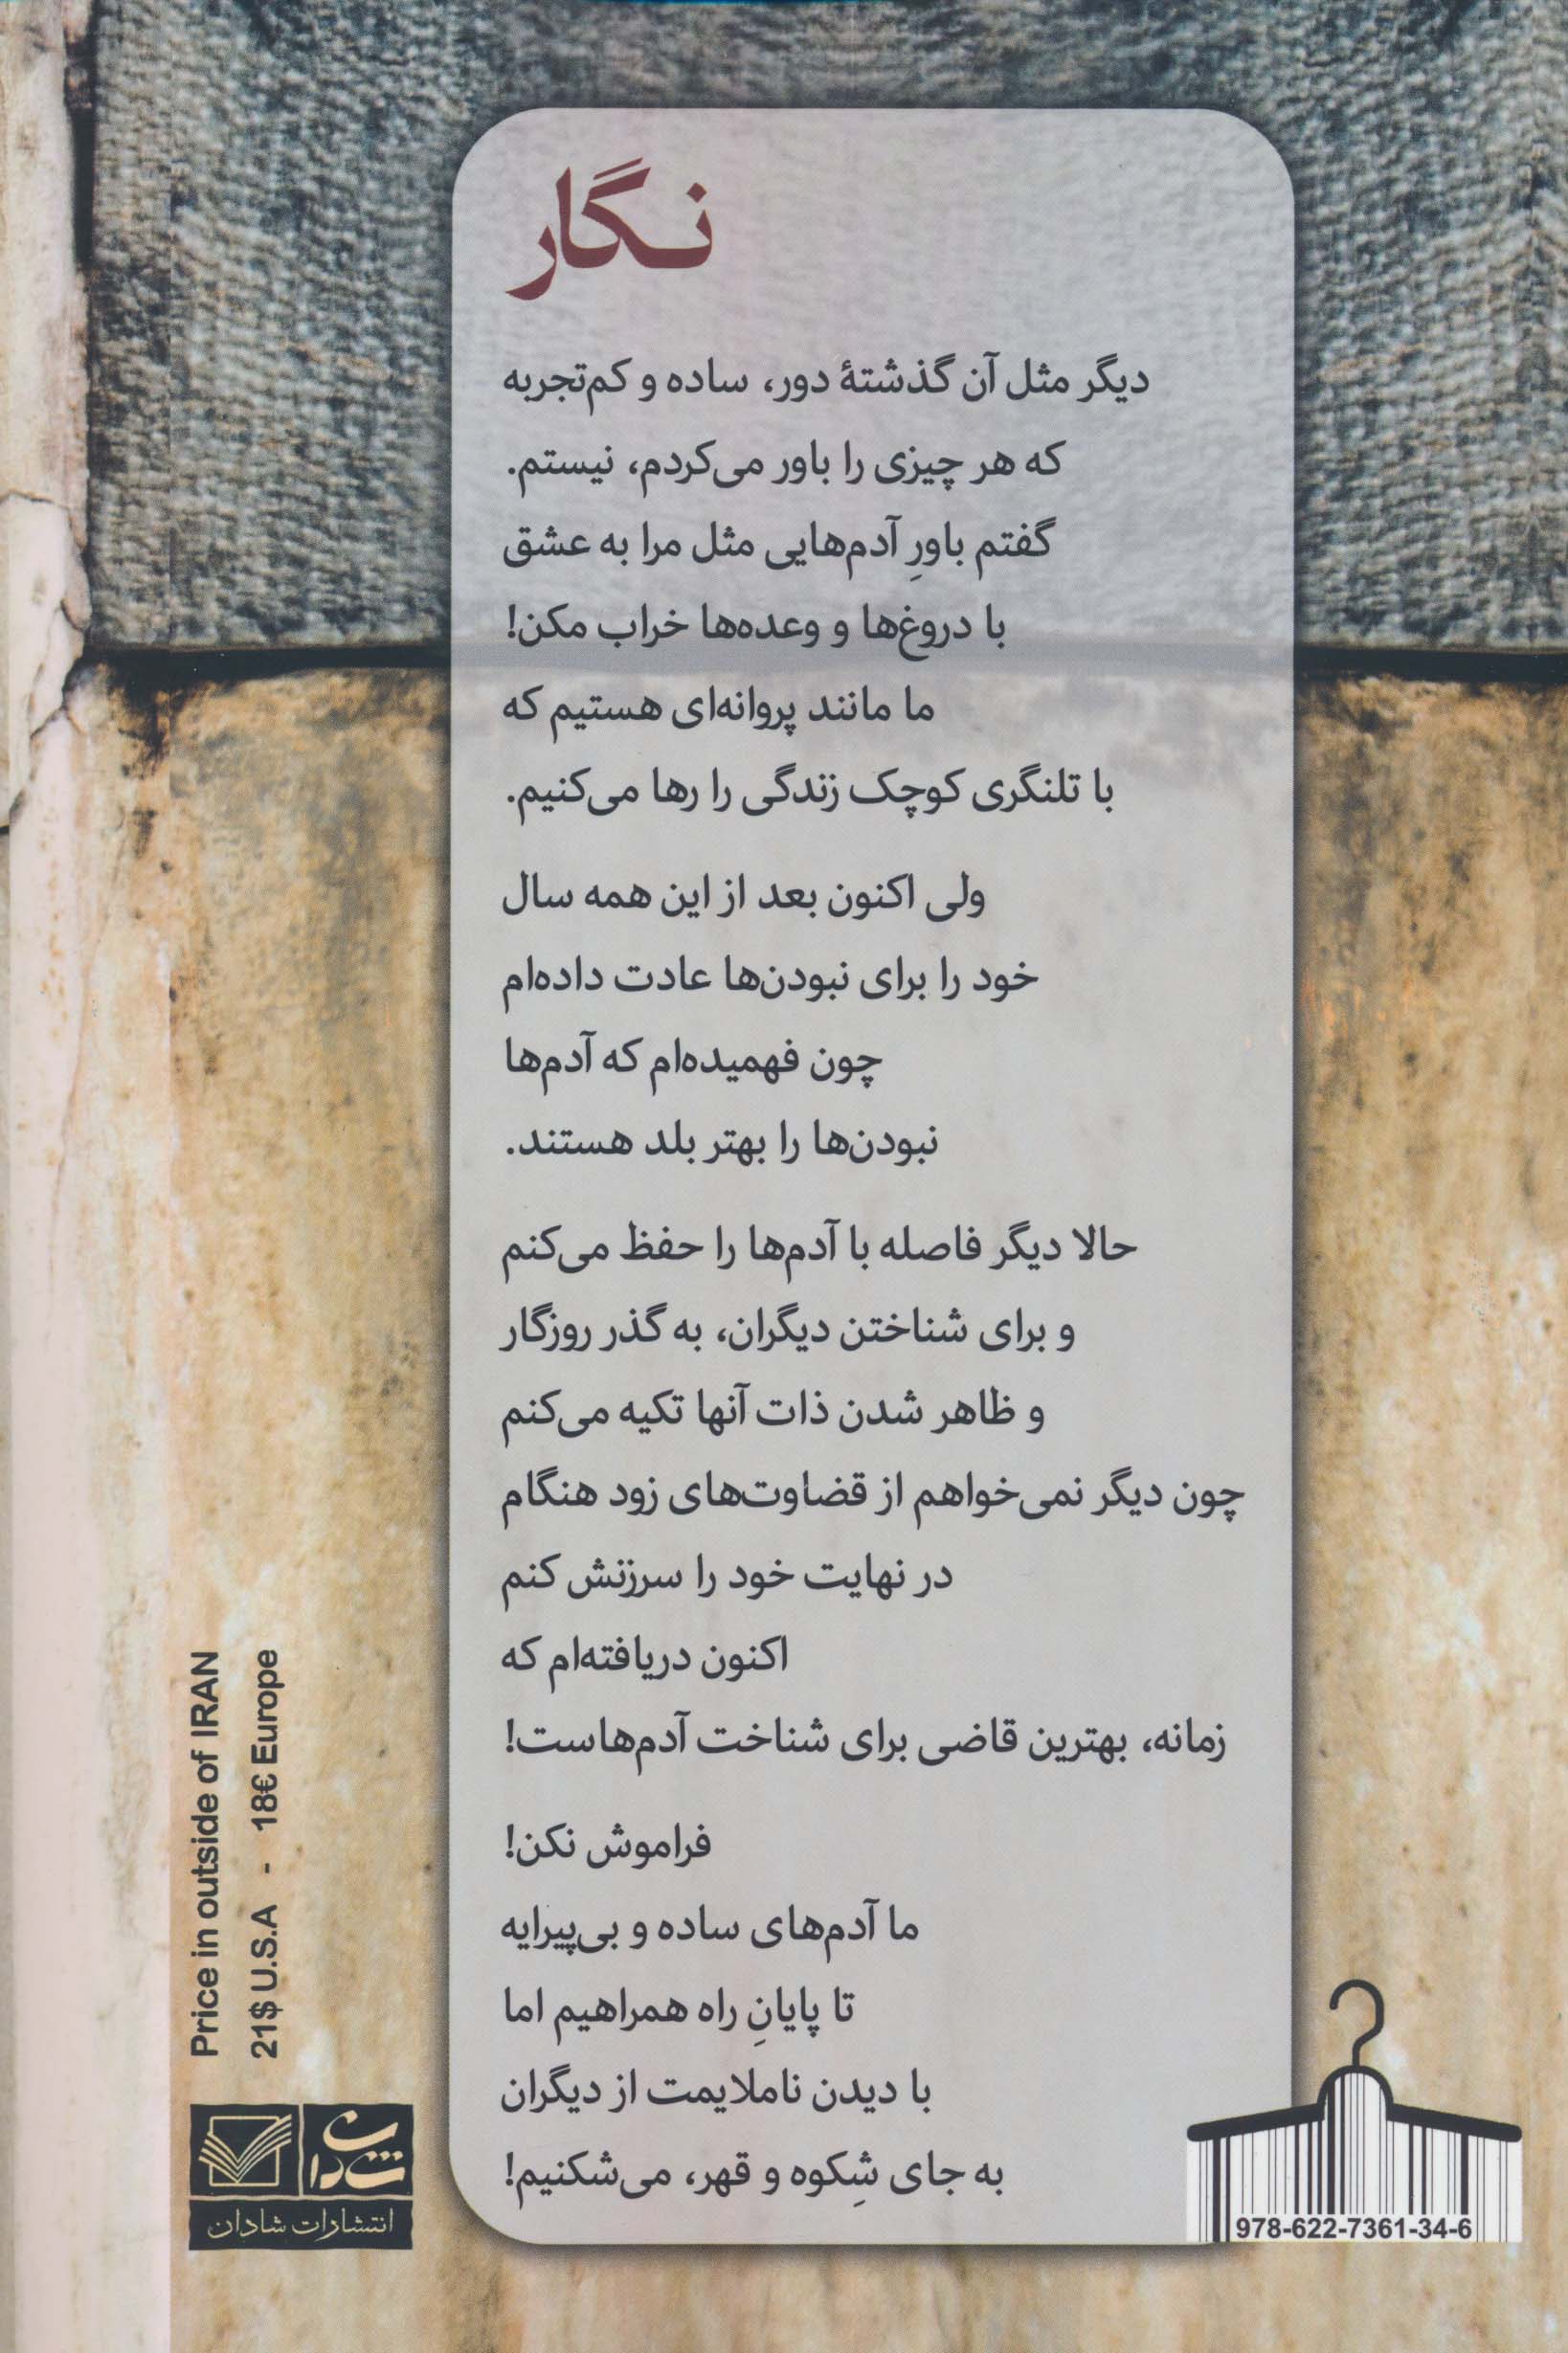 نگار
دیگر مثل آن گذشتهٔ دور، ساده و کم‌تجربه
که هر چیزی را باور می‌کردم، نیستم.
گفتم باورِ آدم‌هایی مثل مرا به عشق
با دروغ‌ها و وعده‌ها خراب مکن!
ما مانند پروانه‌ای هستیم که
با تلنگری کوچک زندگی را رها می‌کنیم.
ولی اکنون بعد از این همه سال
خود را برای نبودن‌ها عادت داده‌ام
چون فهمیده‌ام که آدم‌ها
نبودن‌ها را بهتر بلد هستند.
حالا دیگر فاصله با آدم‌ها را حفظ می‌کنم
و برای شناختن دیگران، به گذر روزگار
و ظاهر شدن ذات آنها تکیه می‌کنم
چون دیگر نمی‌خواهم از قضاوت‌های زود هنگام
در نهایت خود را سرزنش کنم
اکنون دریافته‌ام که
زمانه، بهترین قاضی برای شناخت آدم‌هاست!
فراموش نکن!
ما آدم‌های ساده و بی‌پیرایه
تا پایانِ راه همراهیم اما
با دیدن ناملایمت از دیگران
به جای شِکوه و قهر، می‌شکنیم!
Price in outside of IRAN
21$ U.S.A - 18€ Europe
شادان
انتشارات شادان
978-622-7361-34-6